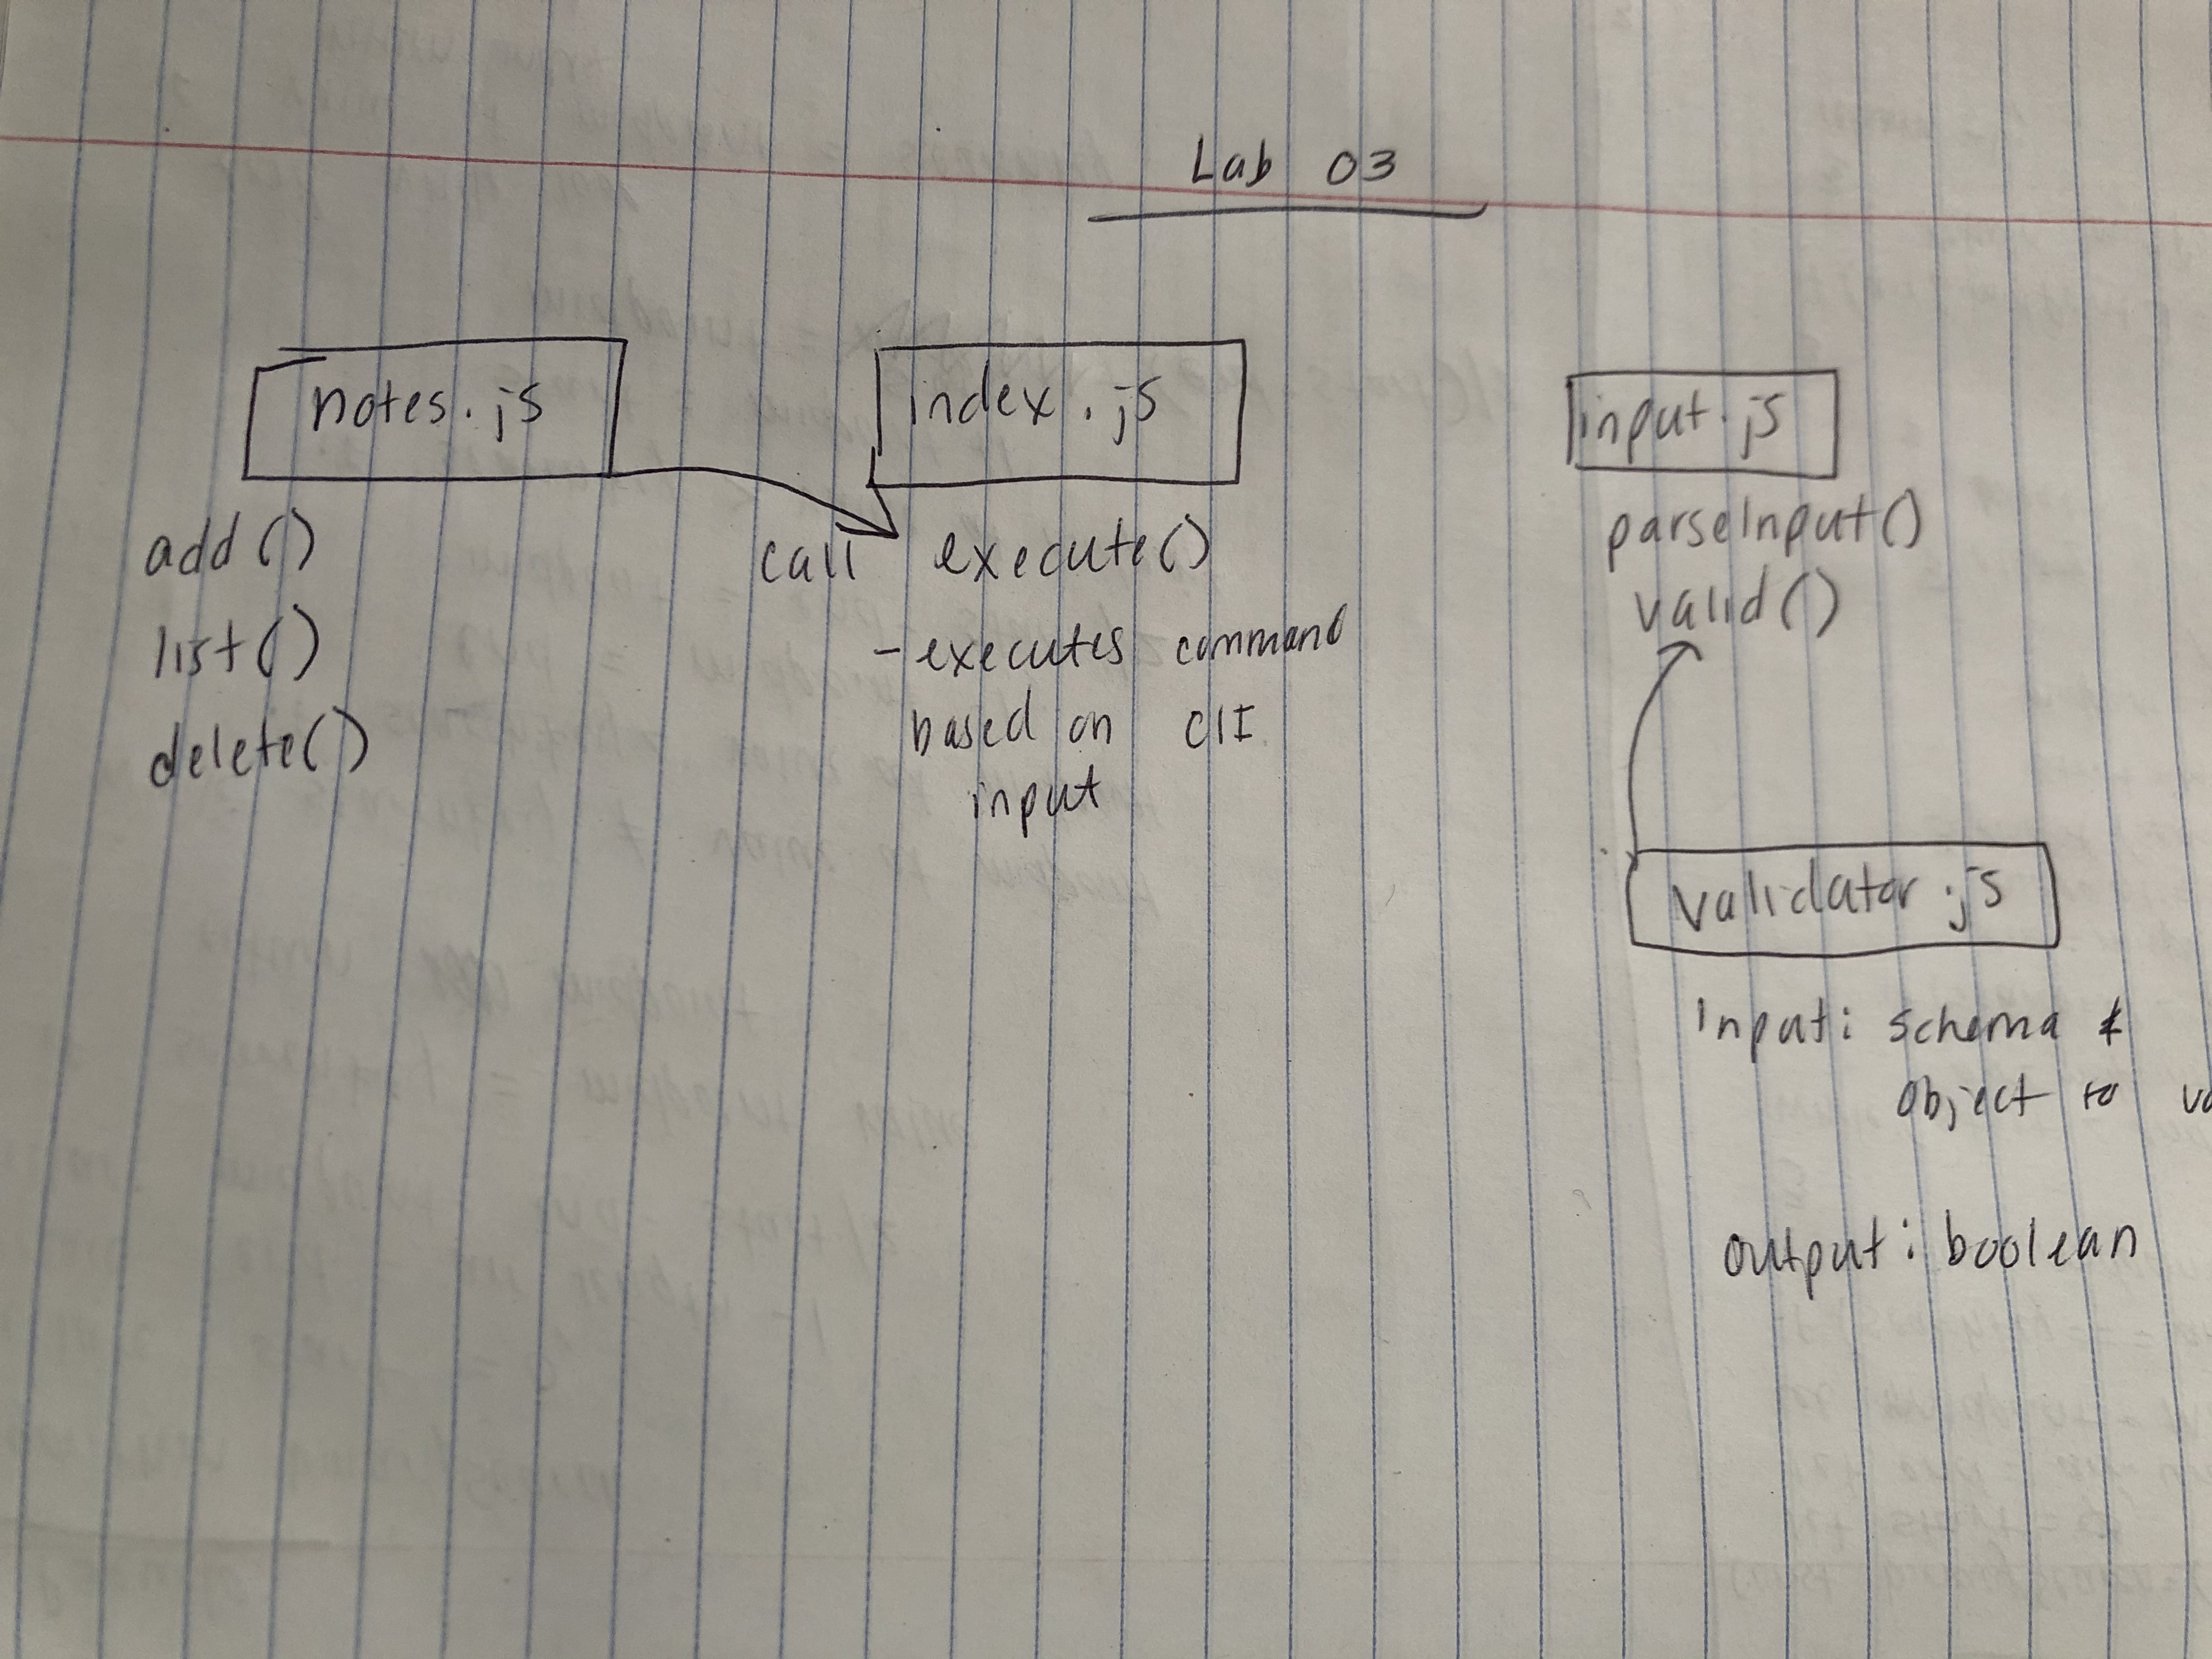 Lab 03
notes.js
add()
list()
delete()
index.js
call execute()
- executes command
based on CLI
input
input.js
parseInput()
valid()
validator.js
Input: schema &
object to
output: boolean